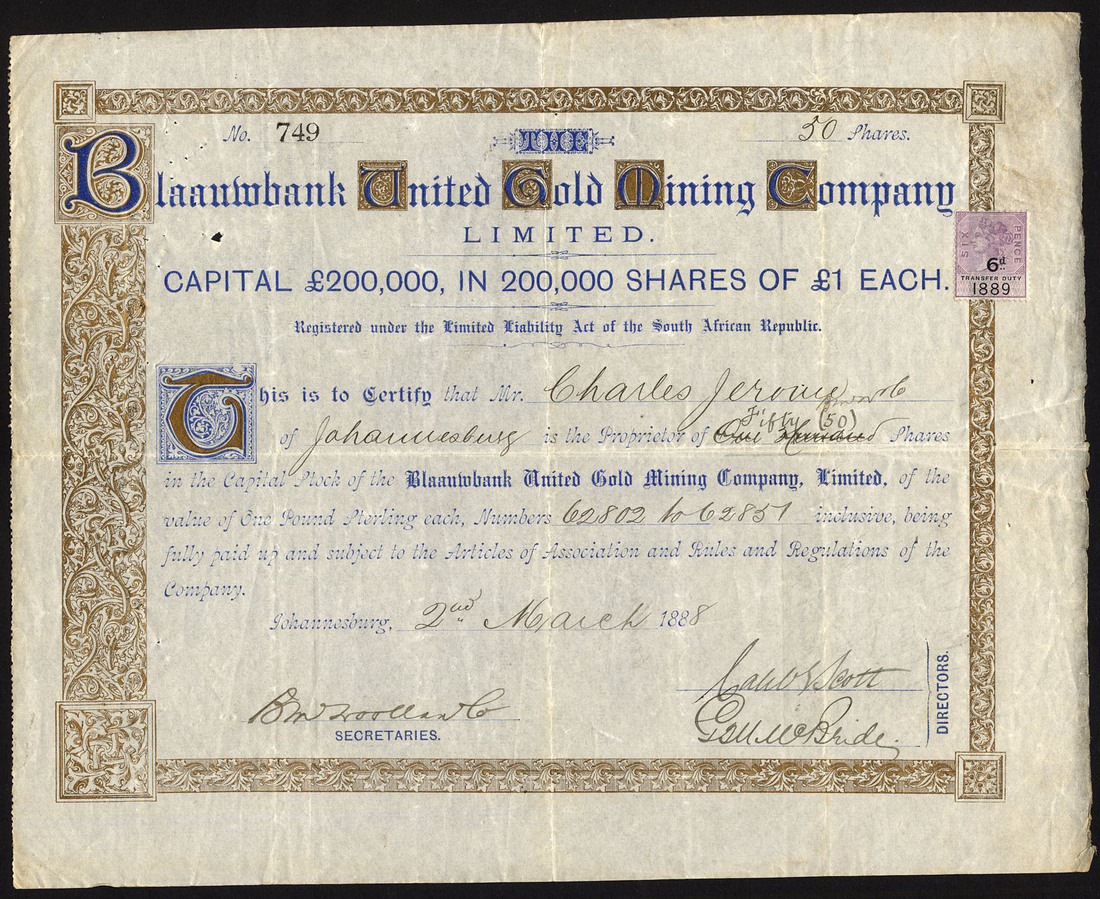 No. 749
50 Shares.
THE
Blaauwbank United Gold Mining Company
LIMITED.
CAPITAL £200,000, IN 200,000 SHARES OF £1 EACH.
SIX PENCE
6d
TRANSFER DUTY
1889
Registered under the Limited Liability Act of the South African Republic.
This is to Certify that Mr. Charles Jerome
Fifty (50)
of Johannesburg is the Proprietor of One Hundred Shares
in the Capital Stock of the Blaauwbank United Gold Mining Company, Limited, of the
value of One Pound Sterling each, Numbers 62802 to 62851 inclusive, being
fully paid up and subject to the Articles of Association and Rules and Regulations of the
Company.
Johannesburg, 2nd March 1888
Scott
McBride
DIRECTORS.
Woollan & Co
SECRETARIES.